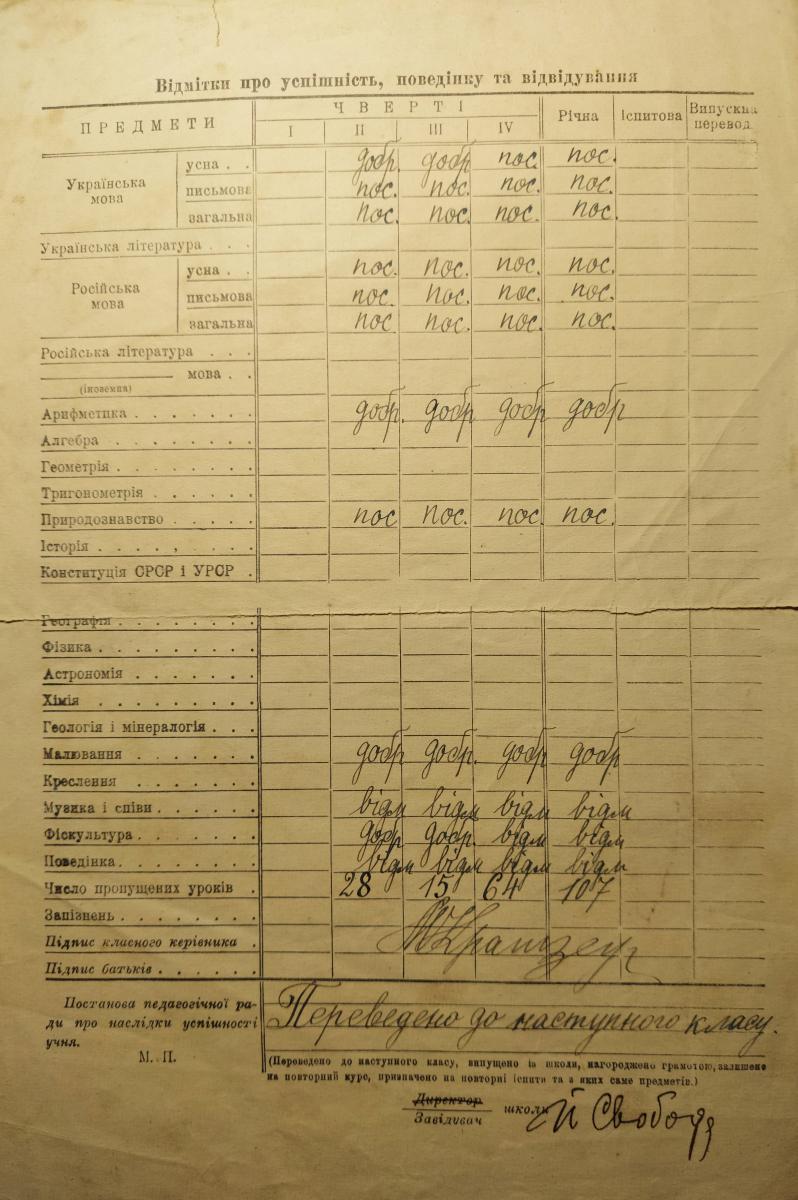 Відмітки про успішність, поведінку та відвідування
ПРЕДМЕТИ ЧВЕРТІ Річна Іспитова Випускна перевод.
I II III IV
Українська мова усна . . добр. добр пос. пос.
письмова пос. пос. пос. пос.
загальна пос. пос. пос. пос.
Українська література . . .
Російська мова усна . . пос. пос. пос. пос.
письмова пос. пос. пос. пос.
загальна пос пос. пос. пос.
Російська література . . .
мова . .
(іноземна)
Арифметика . . . . . . . добр. добр добр добр
Алгебра . . . . . . .
Геометрія . . . . . . .
Тригонометрія . . . . . .
Природознавство . . . . . пос пос. пос. пос.
Історія . . . . , . . . .
Конституція СРСР і УРСР .
Географія . . . . . . . .
Фізика . . . . . . . . .
Астрономія . . . . . . .
Хімія . . . . . . . . .
Геологія і мінералогія . . .
Малювання . . . . . . . добр добр. добр добр
Креслення . . . . . . .
Музика і співи . . . . . . відм відм відм відм
Фіскультура . . . . . . . добр добр. відм відм
Поведінка. . . . . . . . відм відм відм відм
Число пропущених уроків . 28 15 64 107
Запізнень . . . . . . .
Підпис класного керівника .
Підпис батьків . . . . . .
Постанова педагогічної ра- Переведено до наступного класу.
ди про наслідки успішності
учня.
М. П.
(Переведено до наступного класу, випущено із школи, нагороджено грамотою, залишено
на повторний курс, призначено на повторні іспити та з яких саме предметів.)
Директор
Завідувач школи